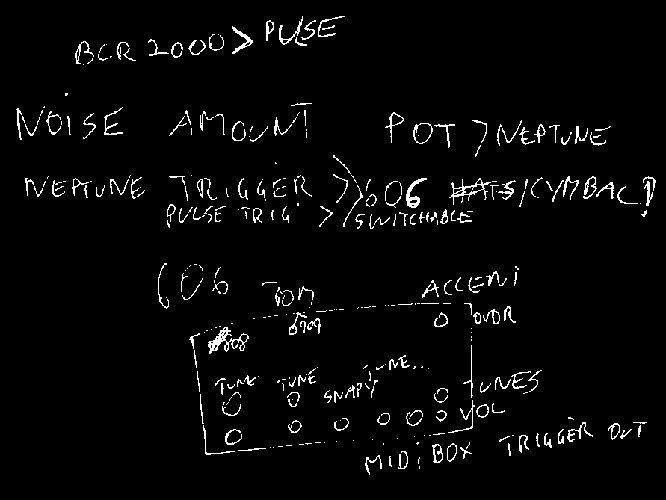 BCR 2000 > PULSE
NOISE AMOUNT POT > NEPTUNE
NEPTUNE TRIGGER > 606 HATS/CYMBAL!
PULSE TRIG > SWITCHABLE
606 TOM ACCENT
808 909
TUNE TUNE SNAPY TUNE... TUNES
VOL
MIDI BOX TRIGGER OUT